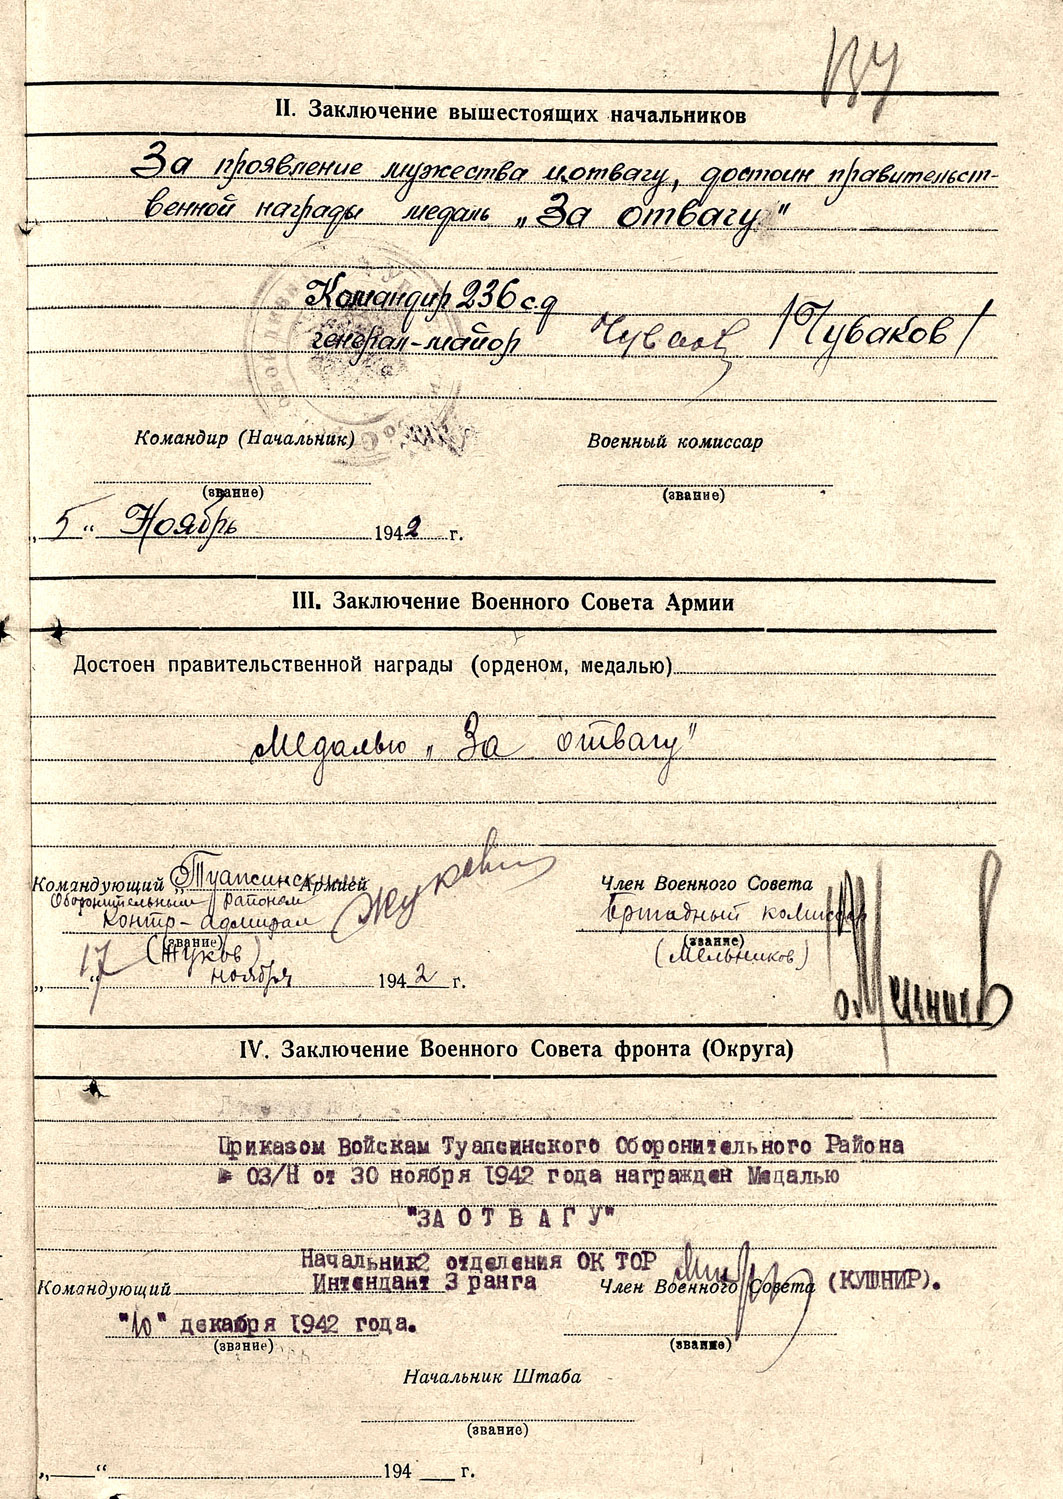 II. Заключение вышестоящих начальников
За проявление мужества и отвагу, достоин правительст-
венной награды медаль „За отвагу"
Командир 236 с.д
генерал-майор Чуваков /Чуваков/
Командир (Начальник) Военный комиссар
(звание) (звание)
„5“ Ноябрь 1942 г.
III. Заключение Военного Совета Армии
Достоен правительственной награды (орденом, медалью)
Медалью „За отвагу"
Командующий Туапсинским Армией Член Военного Совета
Оборонительным районом
Контр-адмирал Жуков Бригадный комиссар
(звание) (звание)
(Жуков) (Мельников)
„17“ ноября 1942 г.
IV. Заключение Военного Совета фронта (Округа)
Приказом Войскам Туапсинского Оборонительного Района
№ 03/Н от 30 ноября 1942 года награжден Медалью
"ЗА ОТВАГУ"
Начальник 2 отделения ОК ТОР
Интендант 3 ранга (КУШНИР).
Командующий Член Военного Совета
"10" декабря 1942 года.
(звание) (звание)
Начальник Штаба
(звание)
„ “ 194 г.